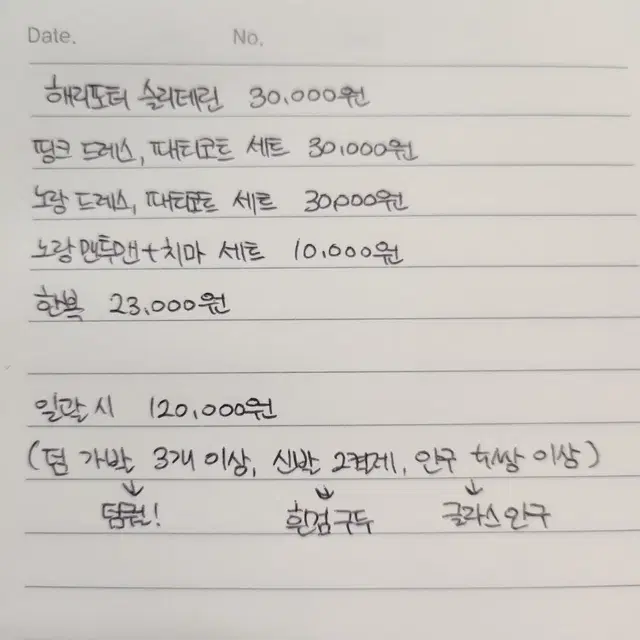 Date. No.
해리포터 슬리데린 30,000원
핑크 드레스, 패티코트 세트 30,000원
노랑 드레스, 패티코트 세트 30,000원
노랑맨투맨+치마 세트 10,000원
한복 23,000원
일괄 시 120,000원
(덤 가발 3개 이상, 신발 2켤레, 안구 쌍 이상)
덤뭘!
흰검구두 글라스안구